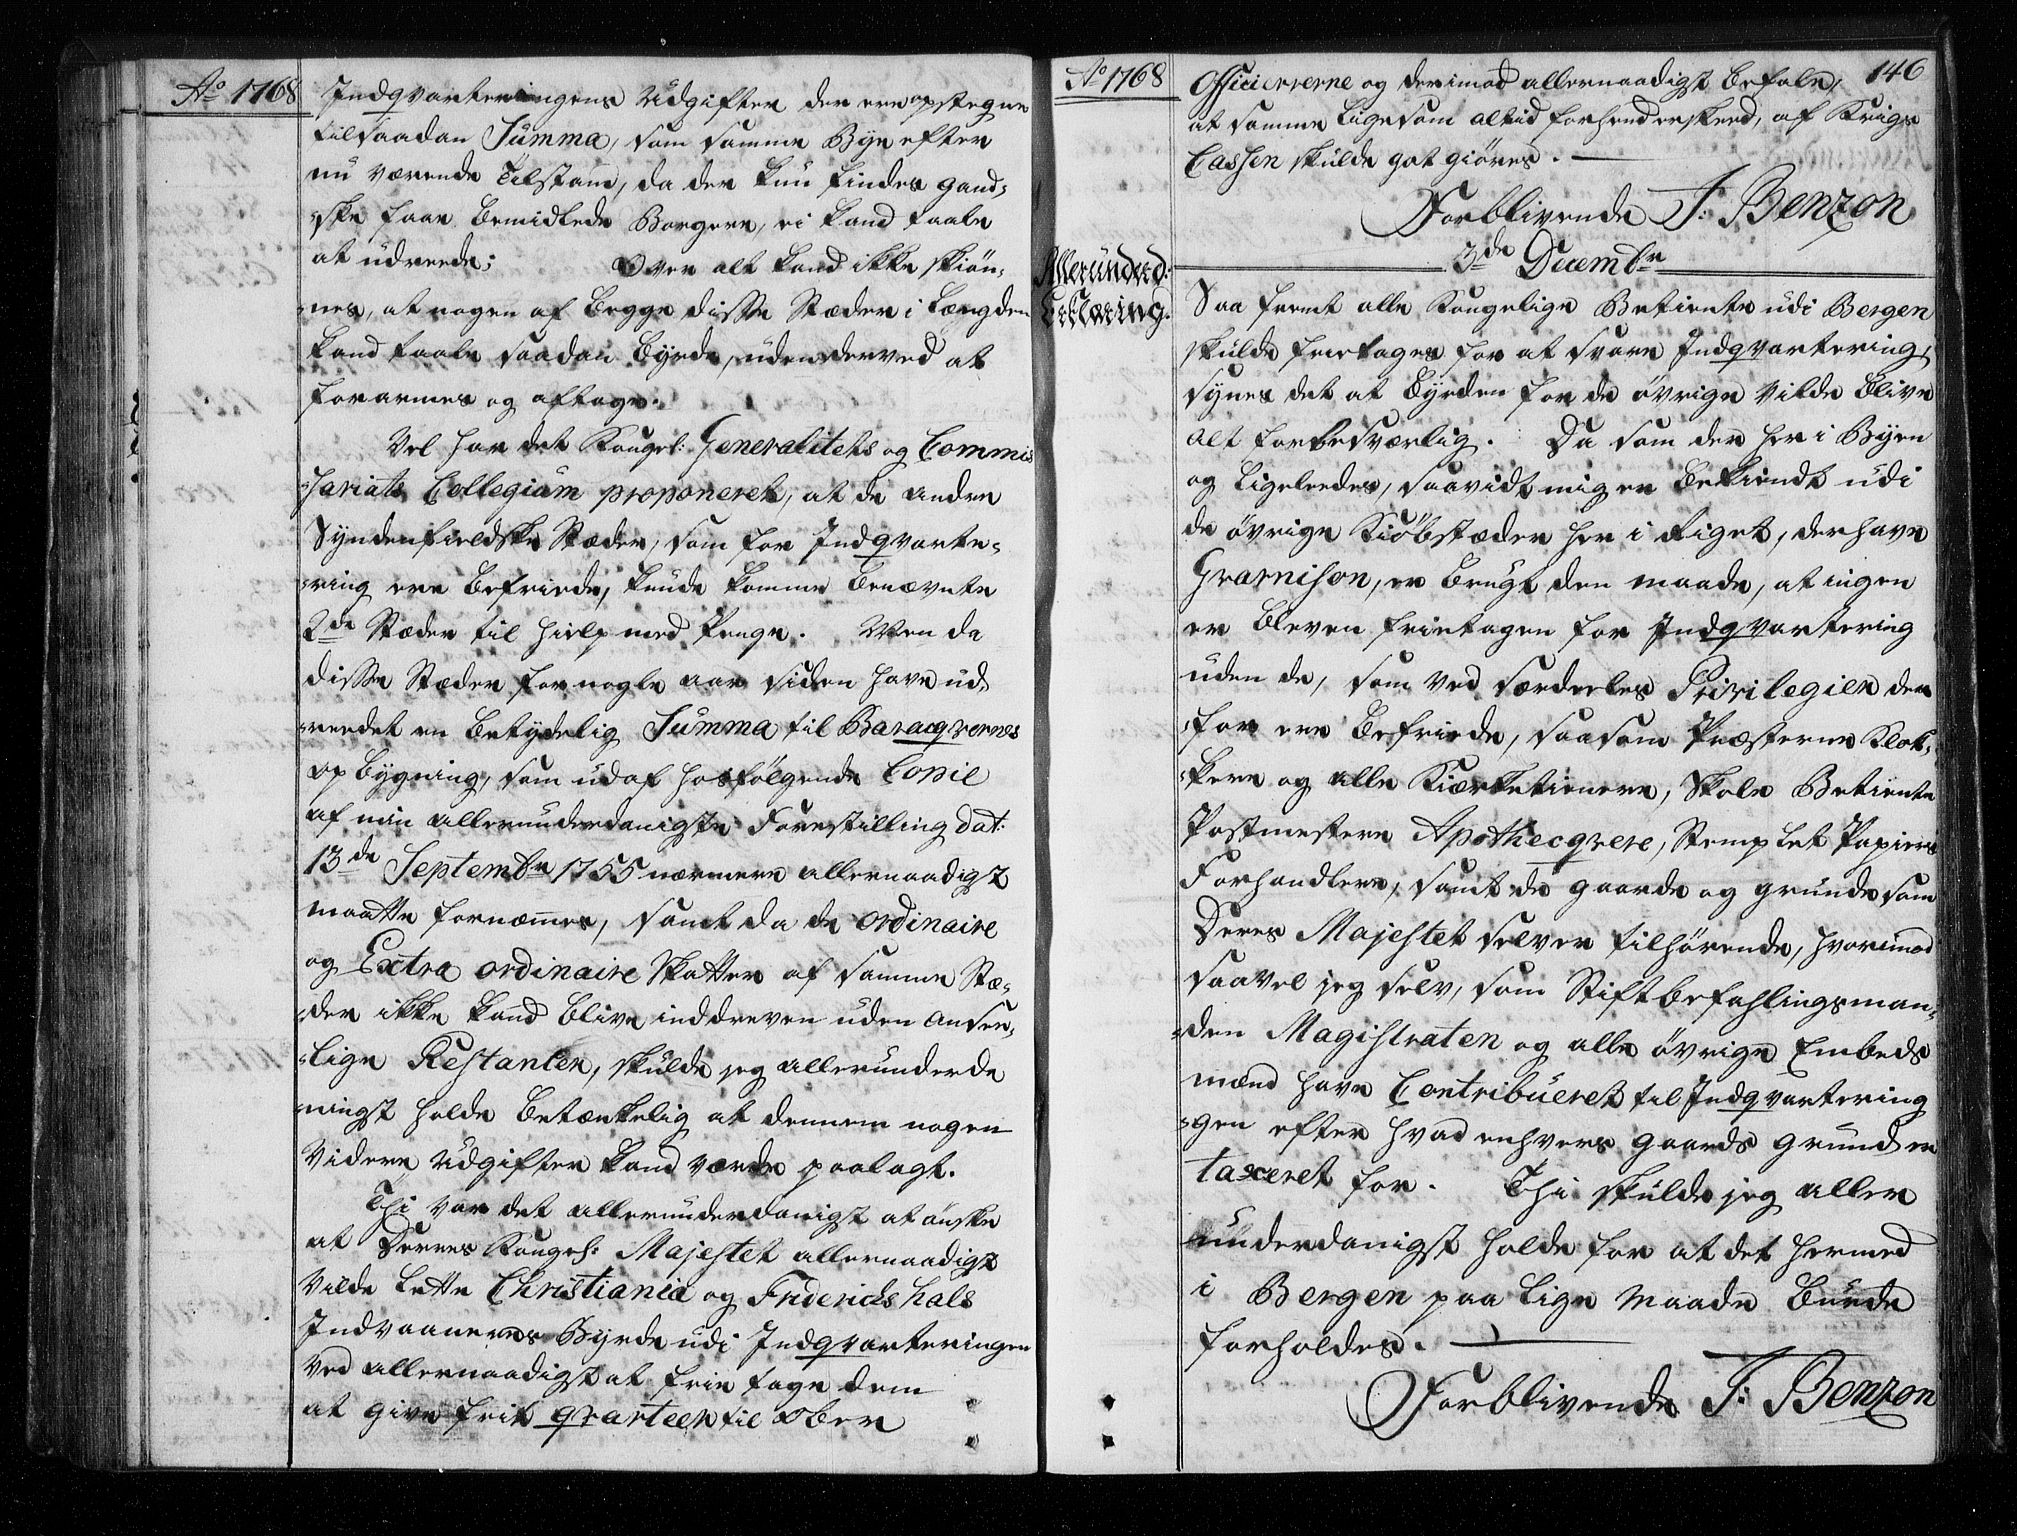 Ao 1768
Indqvarteringens Udgifter der ere opstegne
til saadan Summa, som samme Bye efter
nu værende Tilstand, da der kun findes gand-
-ske faae bemidlede Borgere, ei kand taale
at udreede; Over alt kand ikke skiøn-
-nes, at nogen af begge disse Stæder i Længden
kand taale saadan Byrde, uden derved at
forarmes og aftage.
Vel har det Kongel: Generalitets og Commis
-sariats Collegium proponeret, at de andre
Syndenfieldske Stæder, som for Indqvarte-
-ring ere befriede, kunde komme benævnte
2de Stæder til Hielp med Penge. Men da
disse Stæder for nogle aar siden have ud-
-reedet en betydelig Summa til Baracqvernes
opbygning, som udaf hosfølgende Copie
af min allerunderdanigste Forestilling dat:
13de Septembr 1755 nærmere allernaadigst
maatte fornemmes, samt da de ordinaire
og Extra ordinaire Skatter af samme Stæ-
-der ikke kand blive inddreven uden ansee-
-lige Restantzer, skulde jeg allerunderda
-nigst holde betænkelig at dennem nogen
videre Udgifter kand værde paalagt.
Thi var det allerunderdanigst at ønske
at Deres Kongel: Majestet allernaadigst
vilde lette Christiania og Fridericks hals
Indvaaneres Byrde udi Indqvarteringen
ved allernaadigst at frie tage dem
at give frit qvarteer til Ober
Ao 1768
146
Officiererne og derimod allernaadigst befale,
at samme ligesom altid forhend er skeed, af Krigs
Cassen skulde got giøres.
Forblivende J: Benzon
3de Decembr
Allerunderd:
Erklæring.
Saa fremt alle Kongelige Betiente udi Bergen
skulde frietages for at svare Indqvartering,
synes det at Byrden for de øvrige vilde blive
alt for besværlig. Da som der her i Byen
og ligeleedes, saavidt mig er bekiendt udi
de øvrige Kiøbstæder her i Riget, der have
Gvarnison, er brugt den maade, at ingen
er bleven frietagen for Indqvartering
uden de, som ved særdeeles Privilegier der
-for ere befriede, saasom Præsterne Klok-
-kere og alle Kirketienere, Skole Betiente
Postmestere Apothecqvere, Stemplet Papiers
Forhandlere, samt de gaarde og grunde som
Deres Majestet selver tilhørende, hvorimod
saavel jeg selv, som Stiftbefahlingsman-
-den Magistraten og alle øvrige Embeds
mænd have Contribueret til Indqvartering
-gen efter hvad enhvers gaards grund er
taxeret for. Thi skulde jeg aller
underdanigst holde for at det hermed
i Bergen paa lige Maade burde
forholdes.
Forblivende J: Benzon